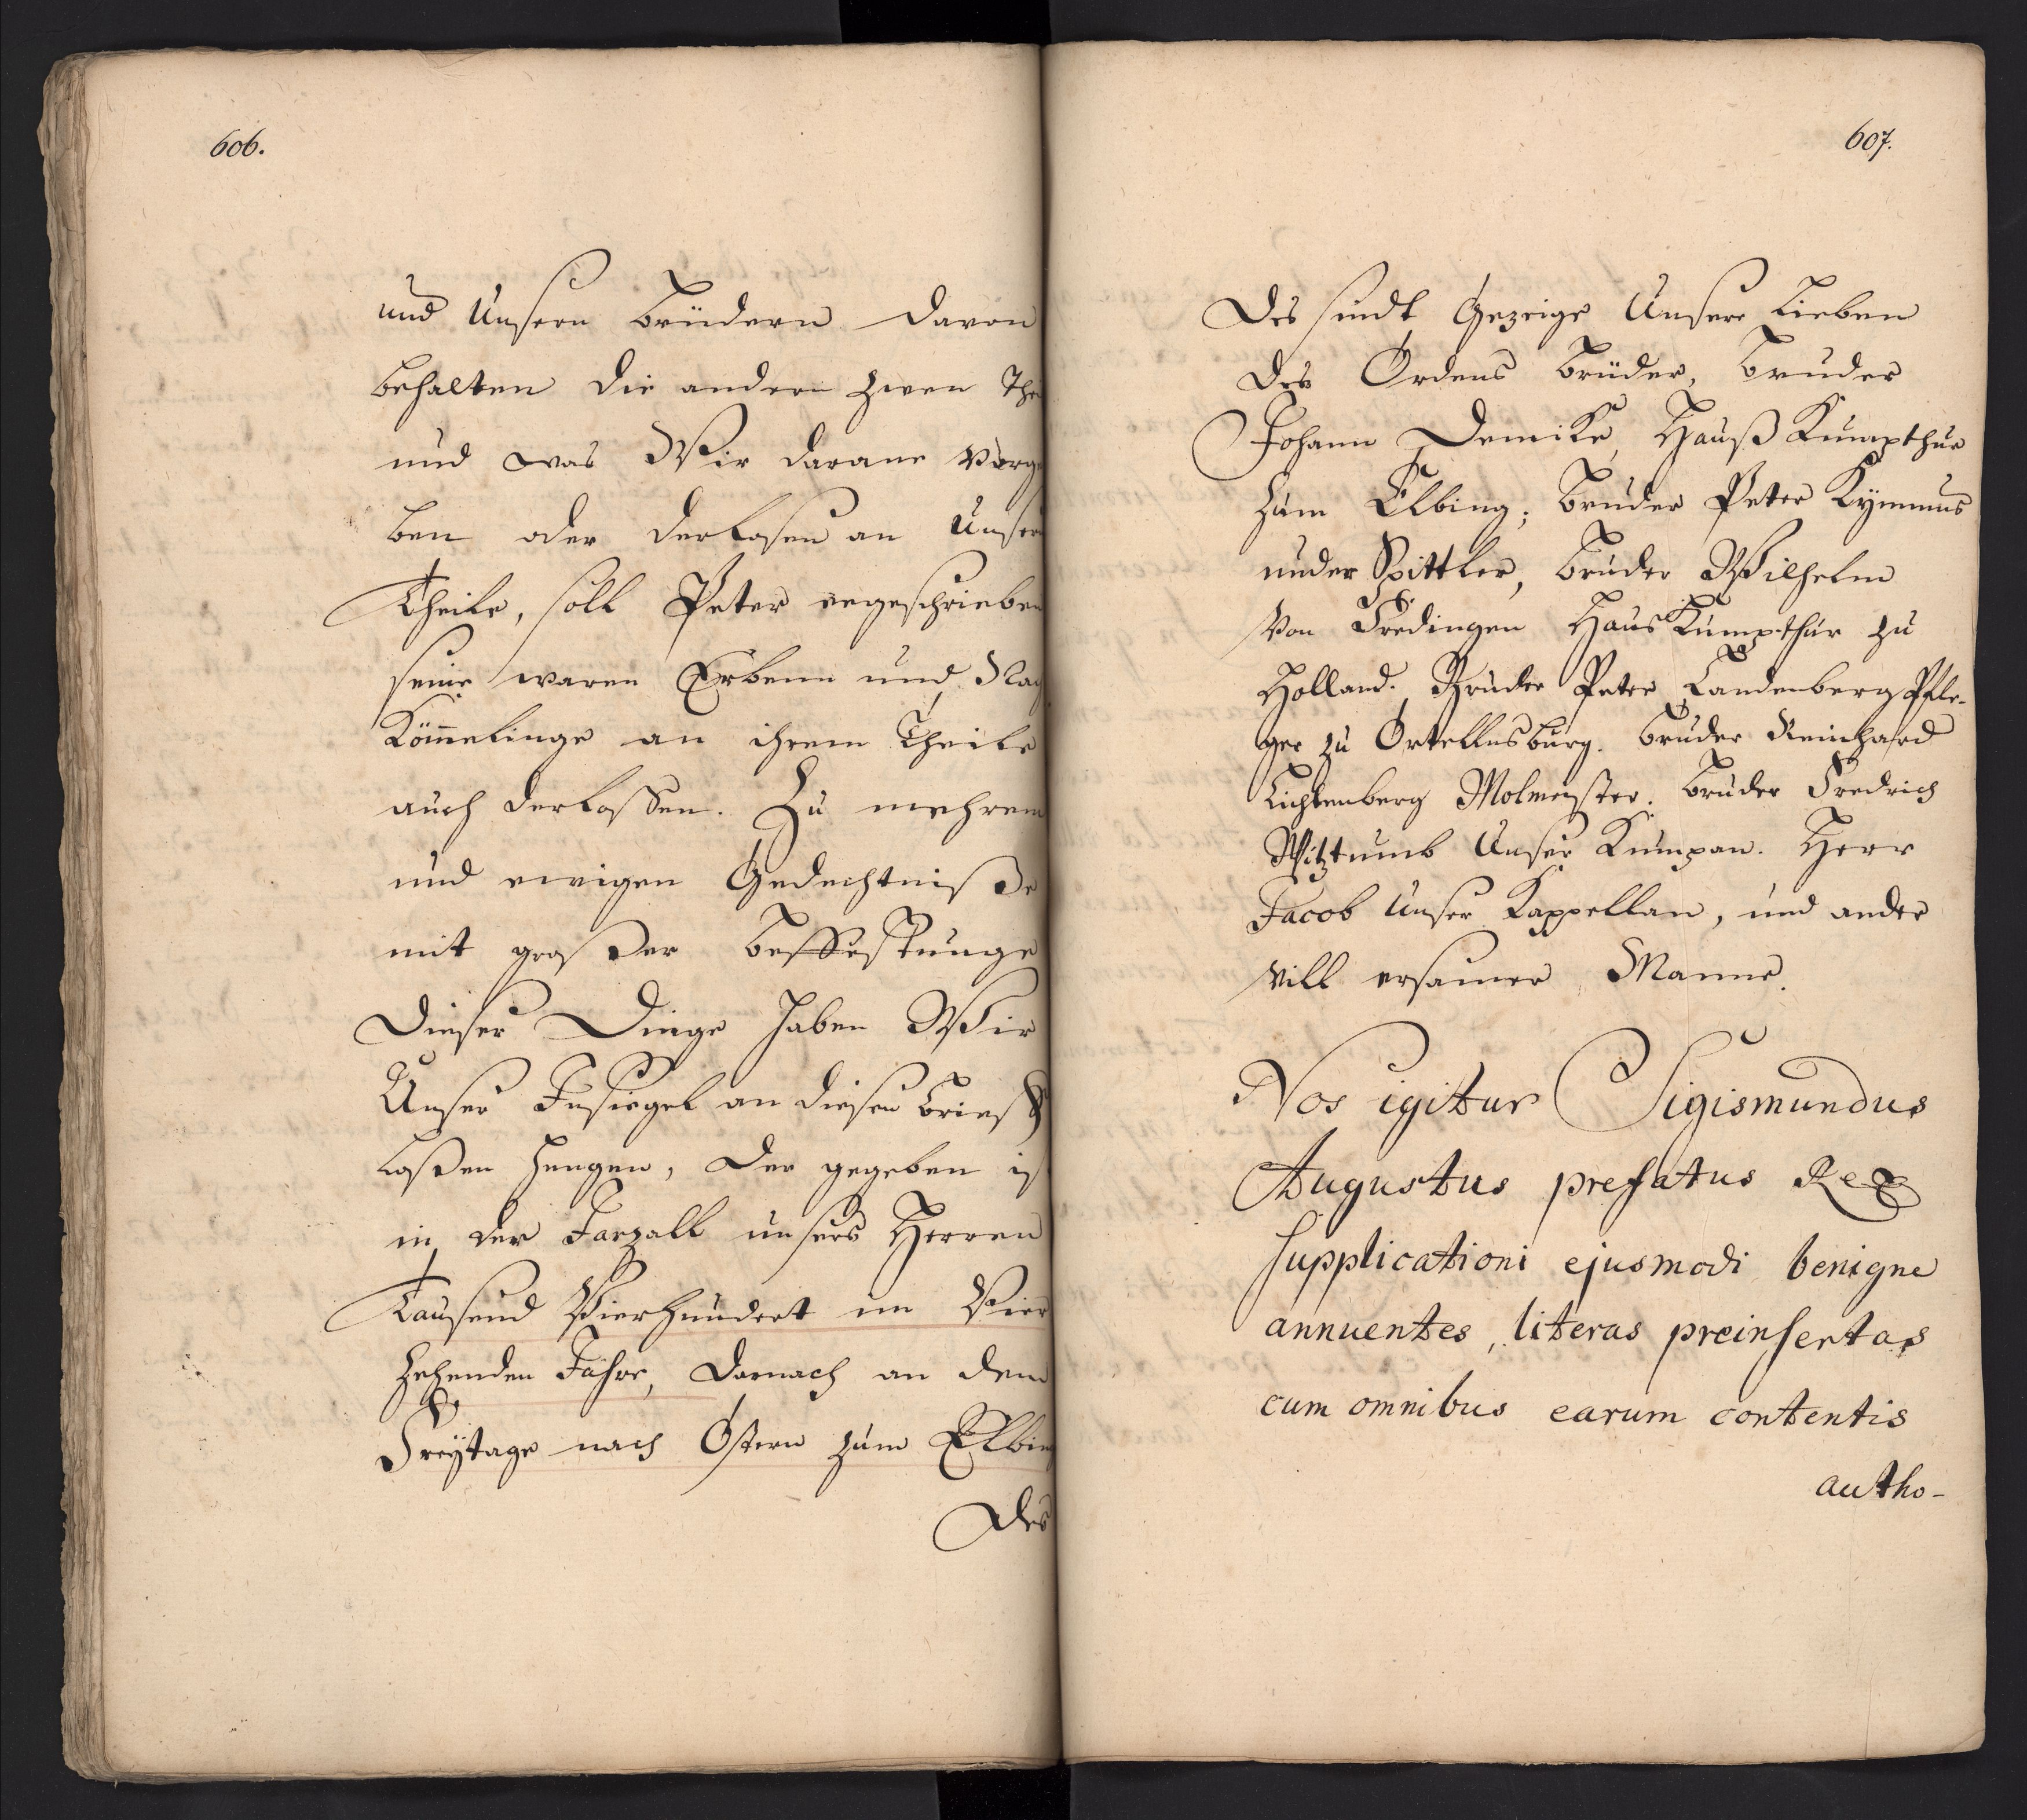 606.
und Unsern Brüdern davon
behalten die andern zwen The
und was Wir darane Verge
ben oder derlasen an Unsern
Theile, soll Peter egeschrieben
seine waren Erbenn und Nach
Kömmelinge an ihrem Theile
auch derlassen. Zu mehrem
und ewigen Gedechtniße
mit großer Beffestunge
Dieser Dinge haben Wir
Unser Insiegel an diesen Brieff
laßen hengen, Der gegeben ist
in der Jarzall unsers Herren
Tausend Vierhundert im Vier
zehenden Jahre, Darnach an dem
Freÿtage nach Ostern zum Elbing
Des
607.
Des sindt Gezeige Unsere Lieben
des Ordens Brüder, Bruder
Johann Demike, Hauß Kumpthur
zum Elbing; Bruder Peter Kÿmmus
under Spittler, Bruder Wilhelm
Von Tredingen Haus Kumpthur zu
Holland. Bruder Peter Landenberg Pfle-
ger zu Ortellnsburg. Bruder Reinhard
Lichtenberg Molmeister. Bruder Fredrich
Witztumb Unser Kumpan. Herr
Jacob Unser Kappellan, und ander
Vill ersamer Manne.
Nos igitur Sigismundus
Augustus prefatus Rex
supplicationi ejusmodi benigne
annuentes, literas preinsertas
cum omnibus earum contentis
autho-